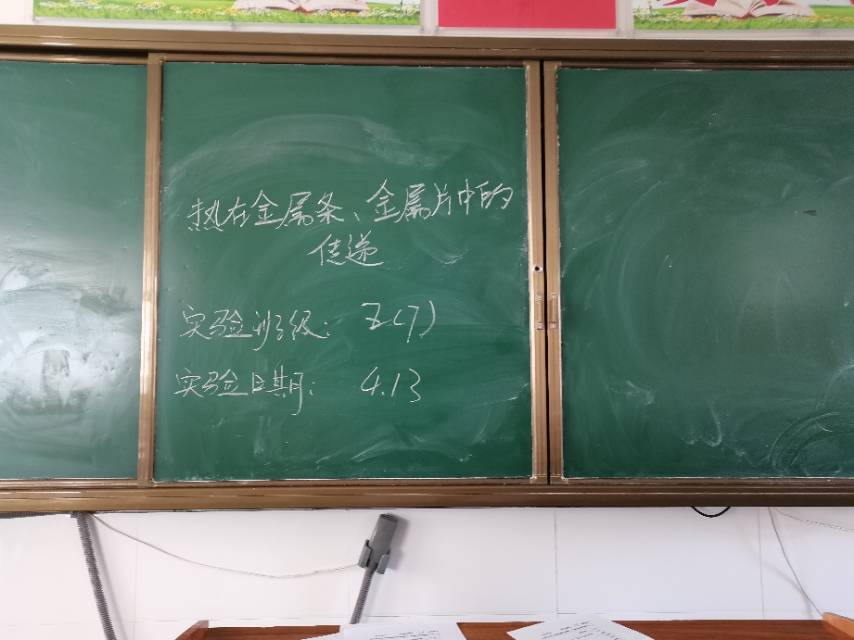 热在金属条、金属片中的
传递
实验班级: 五(7)
实验日期: 4.13